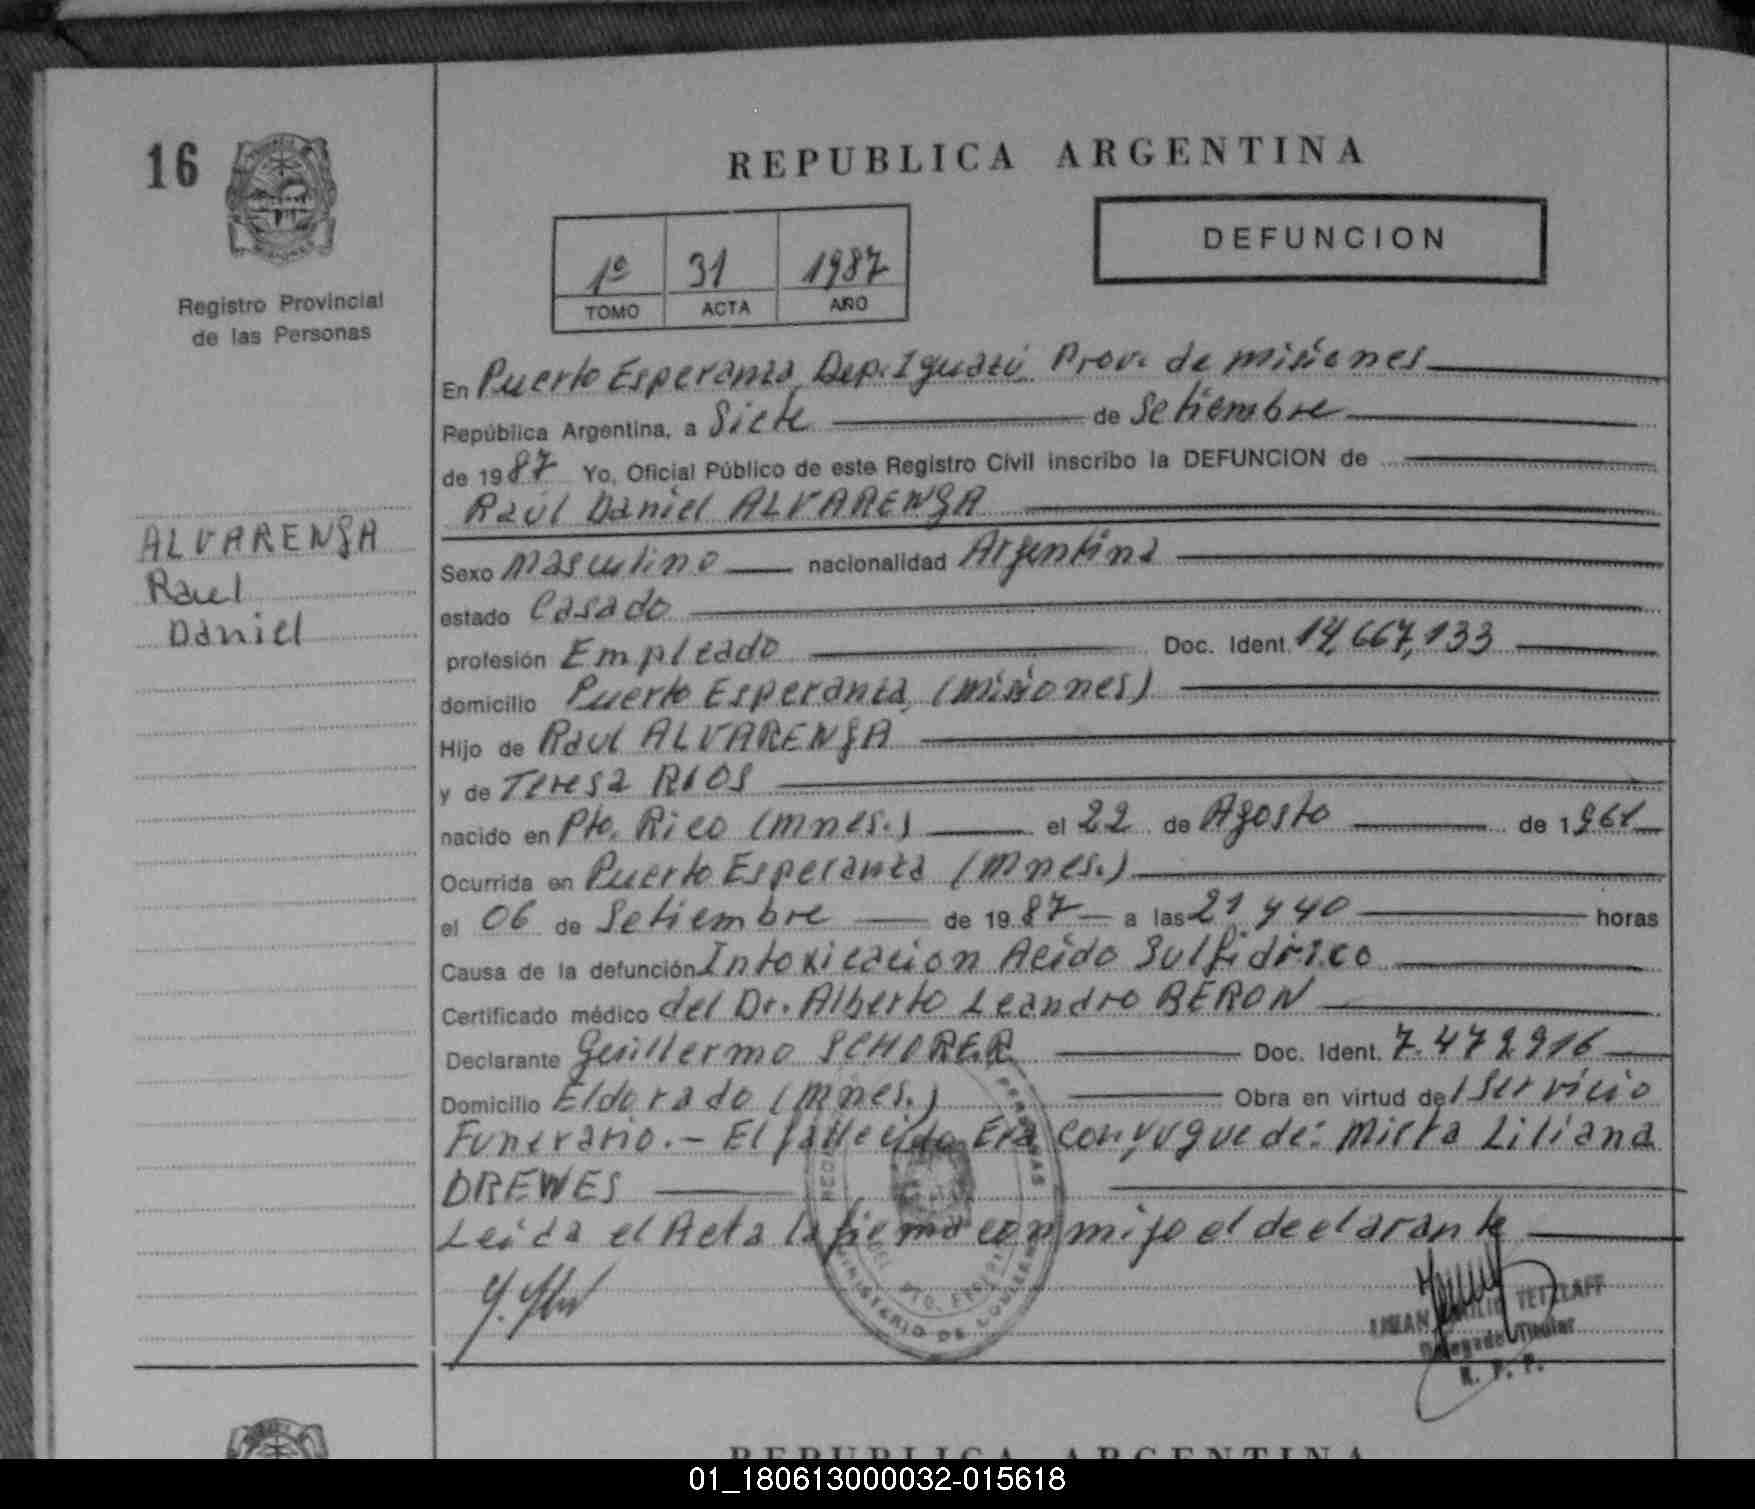 16
REPUBLICA ARGENTINA
DEFUNCION
1º 31 1987
TOMO ACTA AÑO
Registro Provincial
de las Personas
ALVARENGA
Raul
Daniel
En Puerto Esperanza, Dep. Iguazú Prov. de Misiones
República Argentina, a Siete de Setiembre
de 1987 Yo, Oficial Público de este Registro Civil inscribo la DEFUNCION de
Raúl Daniel ALVARENGA
Sexo Masculino nacionalidad Argentina
estado Casado
profesión Empleado Doc. Ident. 14,667,133
domicilio Puerto Esperanza, (Misiones)
Hijo de Raul ALVARENGA
y de Teresa RIOS
nacido en Pto. Rico (Mnes.) el 22 de Agosto de 1961
Ocurrida en Puerto Esperanza (Mnes.)
el 06 de Setiembre de 1987 a las 21 y 40 horas
Causa de la defunción Intoxicacion Acido Sulfidrico
Certificado médico del Dr. Alberto Leandro BERON
Declarante Guillermo SCHORER Doc. Ident. 7.472916
Domicilio Eldorado (Mnes.) Obra en virtud del Servicio
Funerario.- El fallecido Era conyugue de: Mirta Liliana
DREWES
Leida el Acta la firma conmigo el declarante
PERSONAS
MINISTERIO DE GOBIERNO
TETZLAFF
Delegado Titular
R. P. P.
REPUBLICA ARGENTINA
01_180613000032-015618